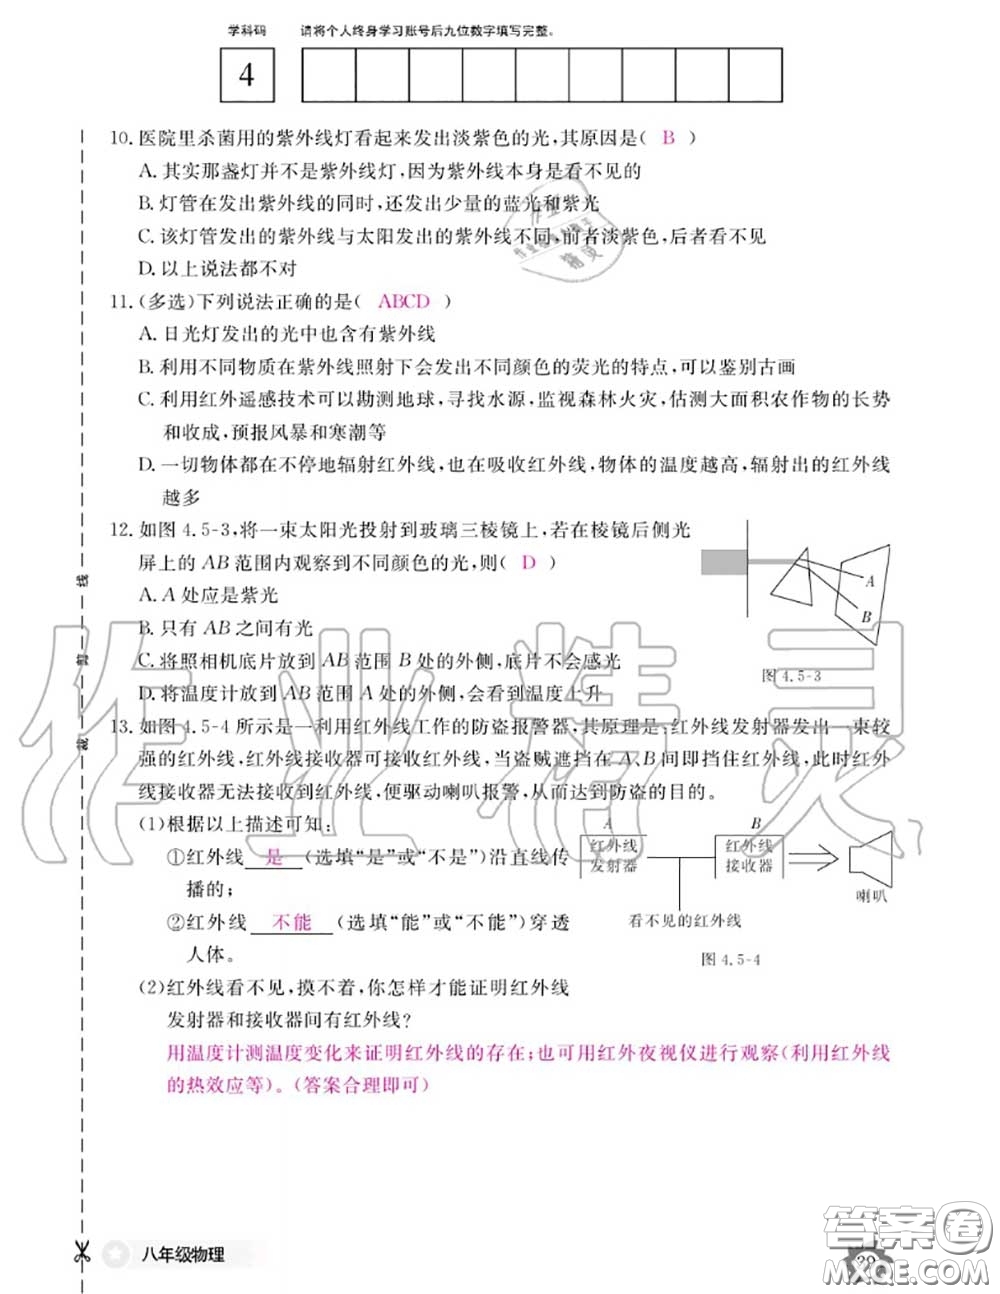 学科码 请将个人终身学习账号后九位数字填写完整。
4
10.医院里杀菌用的紫外线灯看起来发出淡紫色的光,其原因是( B )
A.其实那盏灯并不是紫外线灯,因为紫外线本身是看不见的
B.灯管在发出紫外线的同时,还发出少量的蓝光和紫光
C.该灯管发出的紫外线与太阳发出的紫外线不同,前者淡紫色,后者看不见
D.以上说法都不对
11.(多选)下列说法正确的是( ABCD )
A.日光灯发出的光中也含有紫外线
B.利用不同物质在紫外线照射下会发出不同颜色的荧光的特点,可以鉴别古画
C.利用红外遥感技术可以勘测地球,寻找水源,监视森林火灾,估测大面积农作物的长势
和收成,预报风暴和寒潮等
D.一切物体都在不停地辐射红外线,也在吸收红外线,物体的温度越高,辐射出的红外线
越多
12.如图4.5-3,将一束太阳光投射到玻璃三棱镜上,若在棱镜后侧光
屏上的AB范围内观察到不同颜色的光,则( D )
A.A处应是紫光
B.只有AB之间有光
C.将照相机底片放到AB范围B处的外侧,底片不会感光
D.将温度计放到AB范围A处的外侧,会看到温度上升
A
B
图4.5-3
13.如图4.5-4所示是一利用红外线工作的防盗报警器,其原理是:红外线发射器发出一束较
强的红外线,红外线接收器可接收红外线,当盗贼遮挡在A、B间即挡住红外线,此时红外
线接收器无法接收到红外线,便驱动喇叭报警,从而达到防盗的目的。
(1)根据以上描述可知:
①红外线 是 (选填“是”或“不是”)沿直线传
播的;
②红外线 不能 (选填“能”或“不能”)穿透
人体。
A B
红外线 红外线
发射器 接收器
喇叭
看不见的红外线
图4.5-4
(2)红外线看不见,摸不着,你怎样才能证明红外线
发射器和接收器间有红外线?
用温度计测温度变化来证明红外线的存在;也可用红外夜视仪进行观察(利用红外线
的热效应等)。(答案合理即可)
线
剪
裁
作业精灵
八年级物理
39
答案圈
MXQE.COM